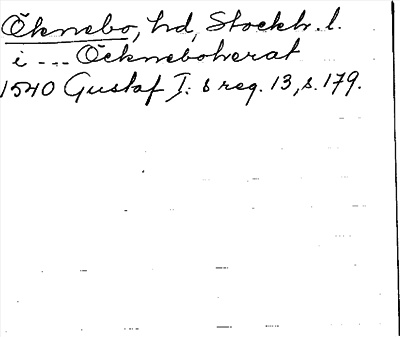 Öknebo, hd, Stockh. l.
i --- Öcknebohverat
1540 Gustaf I:s reg. 13, s. 179.